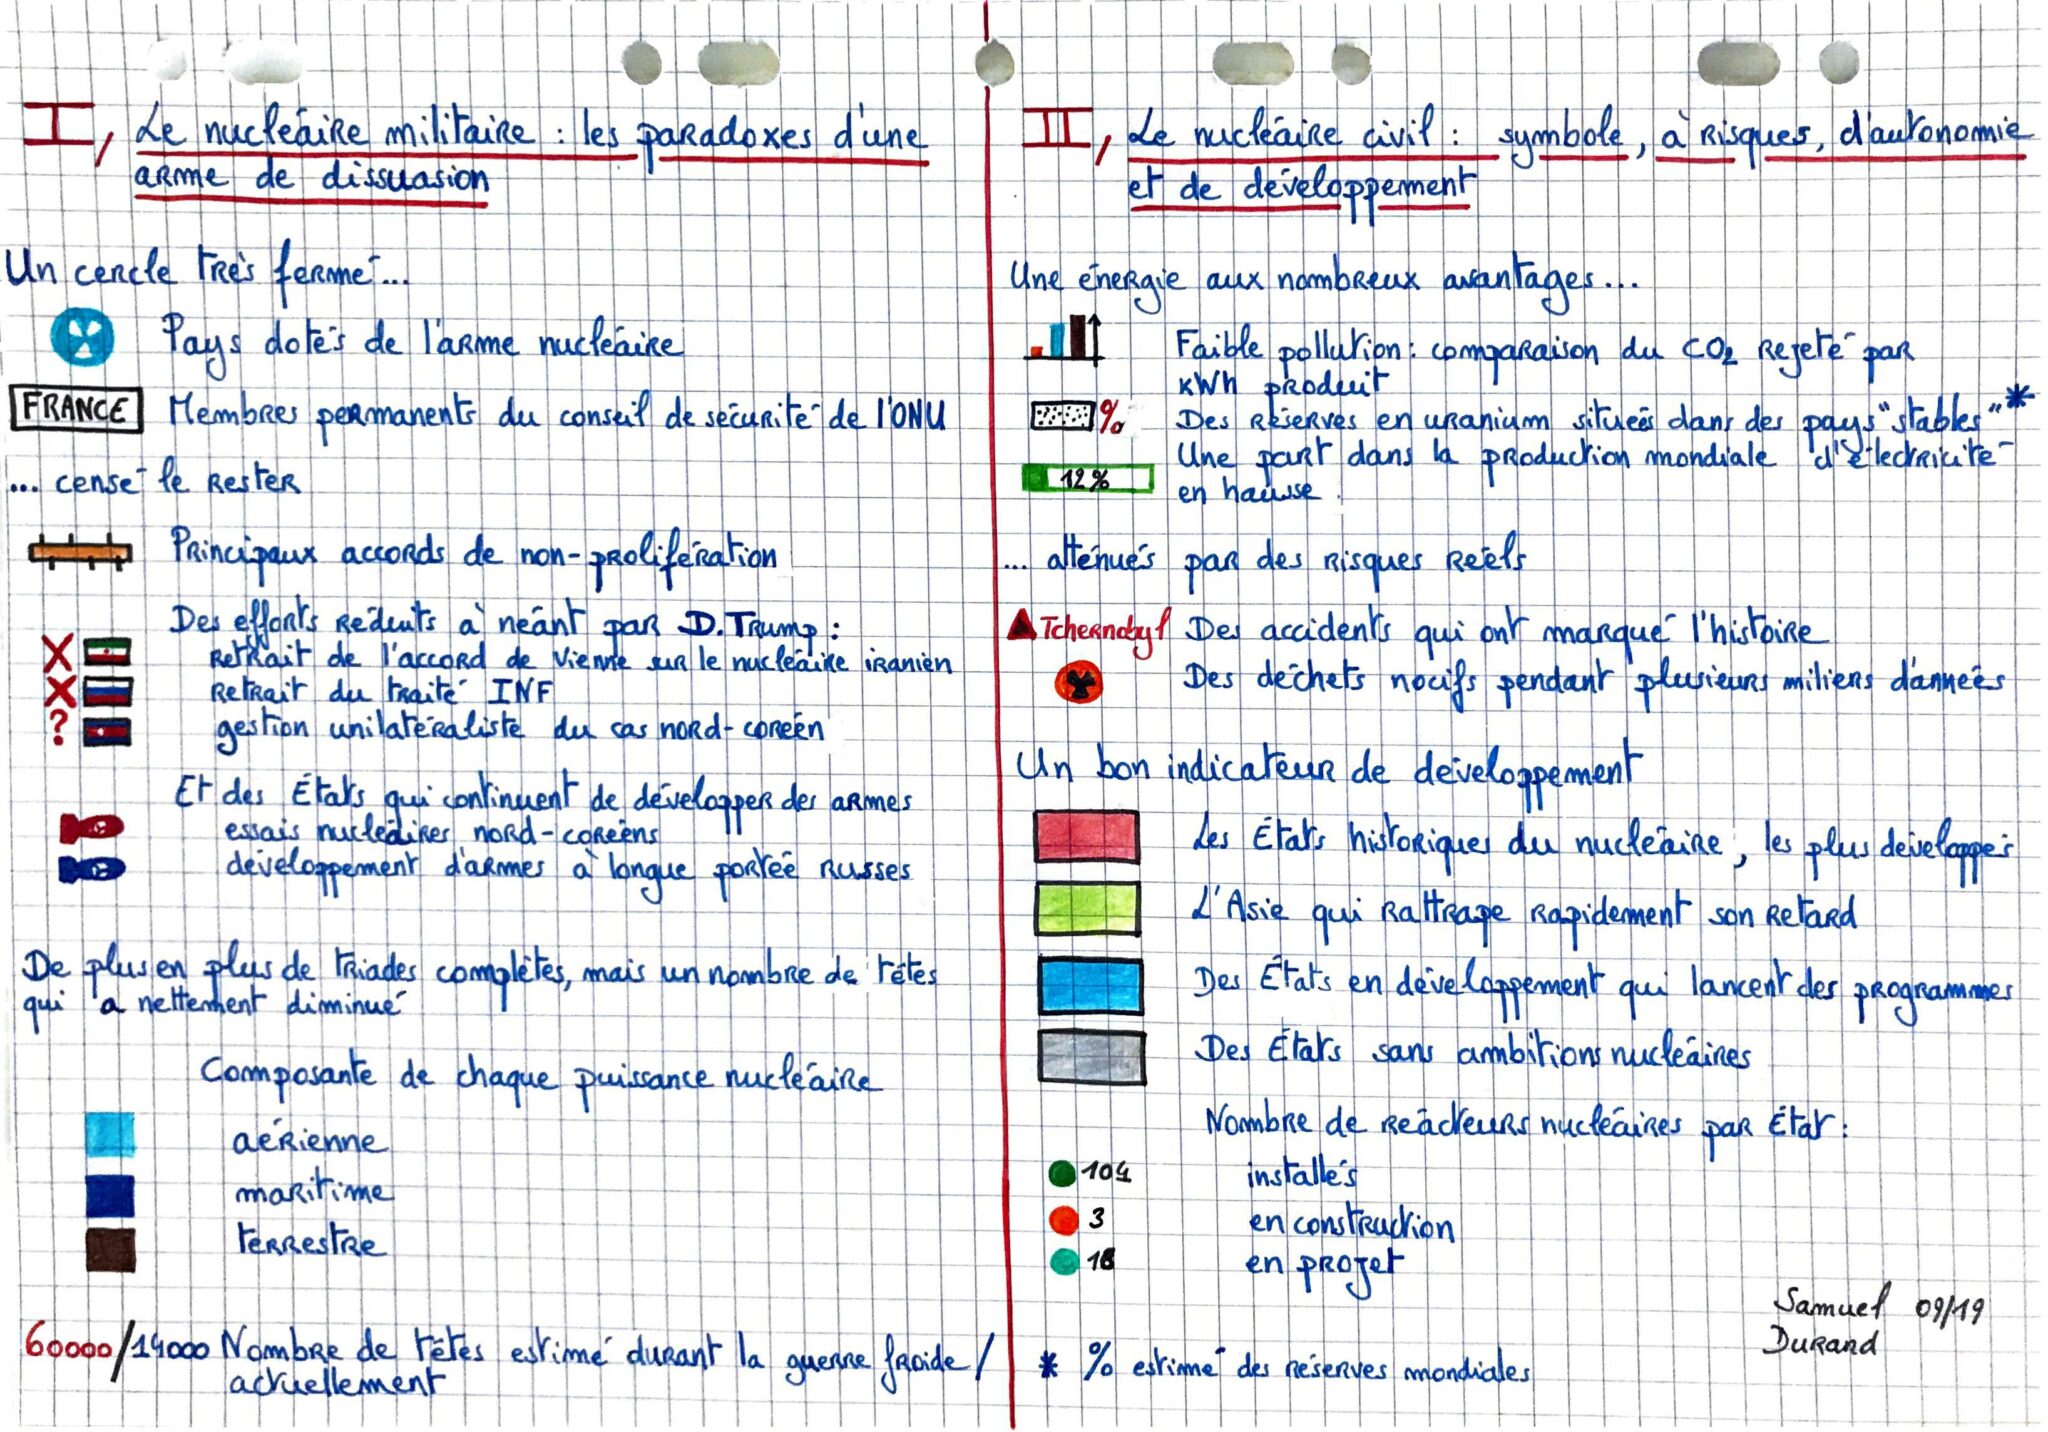 I, Le nucléaire militaire : les paradoxes d'une
arme de dissuasion
Un cercle très fermé...
Pays dotés de l'arme nucléaire
FRANCE Membres permanents du conseil de sécurité de l'ONU
... censé le rester
Principaux accords de non-prolifération
Des efforts réduits à néant par D. Trump :
X retrait de l'accord de Vienne sur le nucléaire iranien
X retrait du traité INF
? gestion unilatéraliste du cas nord-coréen
Et des États qui continuent de développer des armes
essais nucléaires nord-coréens
développement d'armes à longue portée russes
De plus en plus de triades complètes, mais un nombre de têtes
qui a nettement diminué
Composante de chaque puissance nucléaire
aérienne
maritime
terrestre
60000/14000 Nombre de têtes estimé durant la guerre froide /
actuellement
II, Le nucléaire civil : symbole, à risques, d'autonomie
et de développement
Une énergie aux nombreux avantages...
Faible pollution : comparaison du CO2 rejeté par
kWh produit
% Des réserves en uranium situées dans des pays "stables" *
Une part dans la production mondiale d'électricité
12% en hausse
... atténués par des risques réels
Tchernobyl Des accidents qui ont marqué l'histoire
Des déchets nocifs pendant plusieurs miliers d'années
Un bon indicateur de développement
Les États historiques du nucléaire, les plus développés
L'Asie qui rattrape rapidement son retard
Des États en développement qui lancent des programmes
Des États sans ambitions nucléaires
Nombre de réacteurs nucléaires par État :
104 installés
3 en construction
en projet
Samuel 09/19
Durand
* % estimé des réserves mondiales